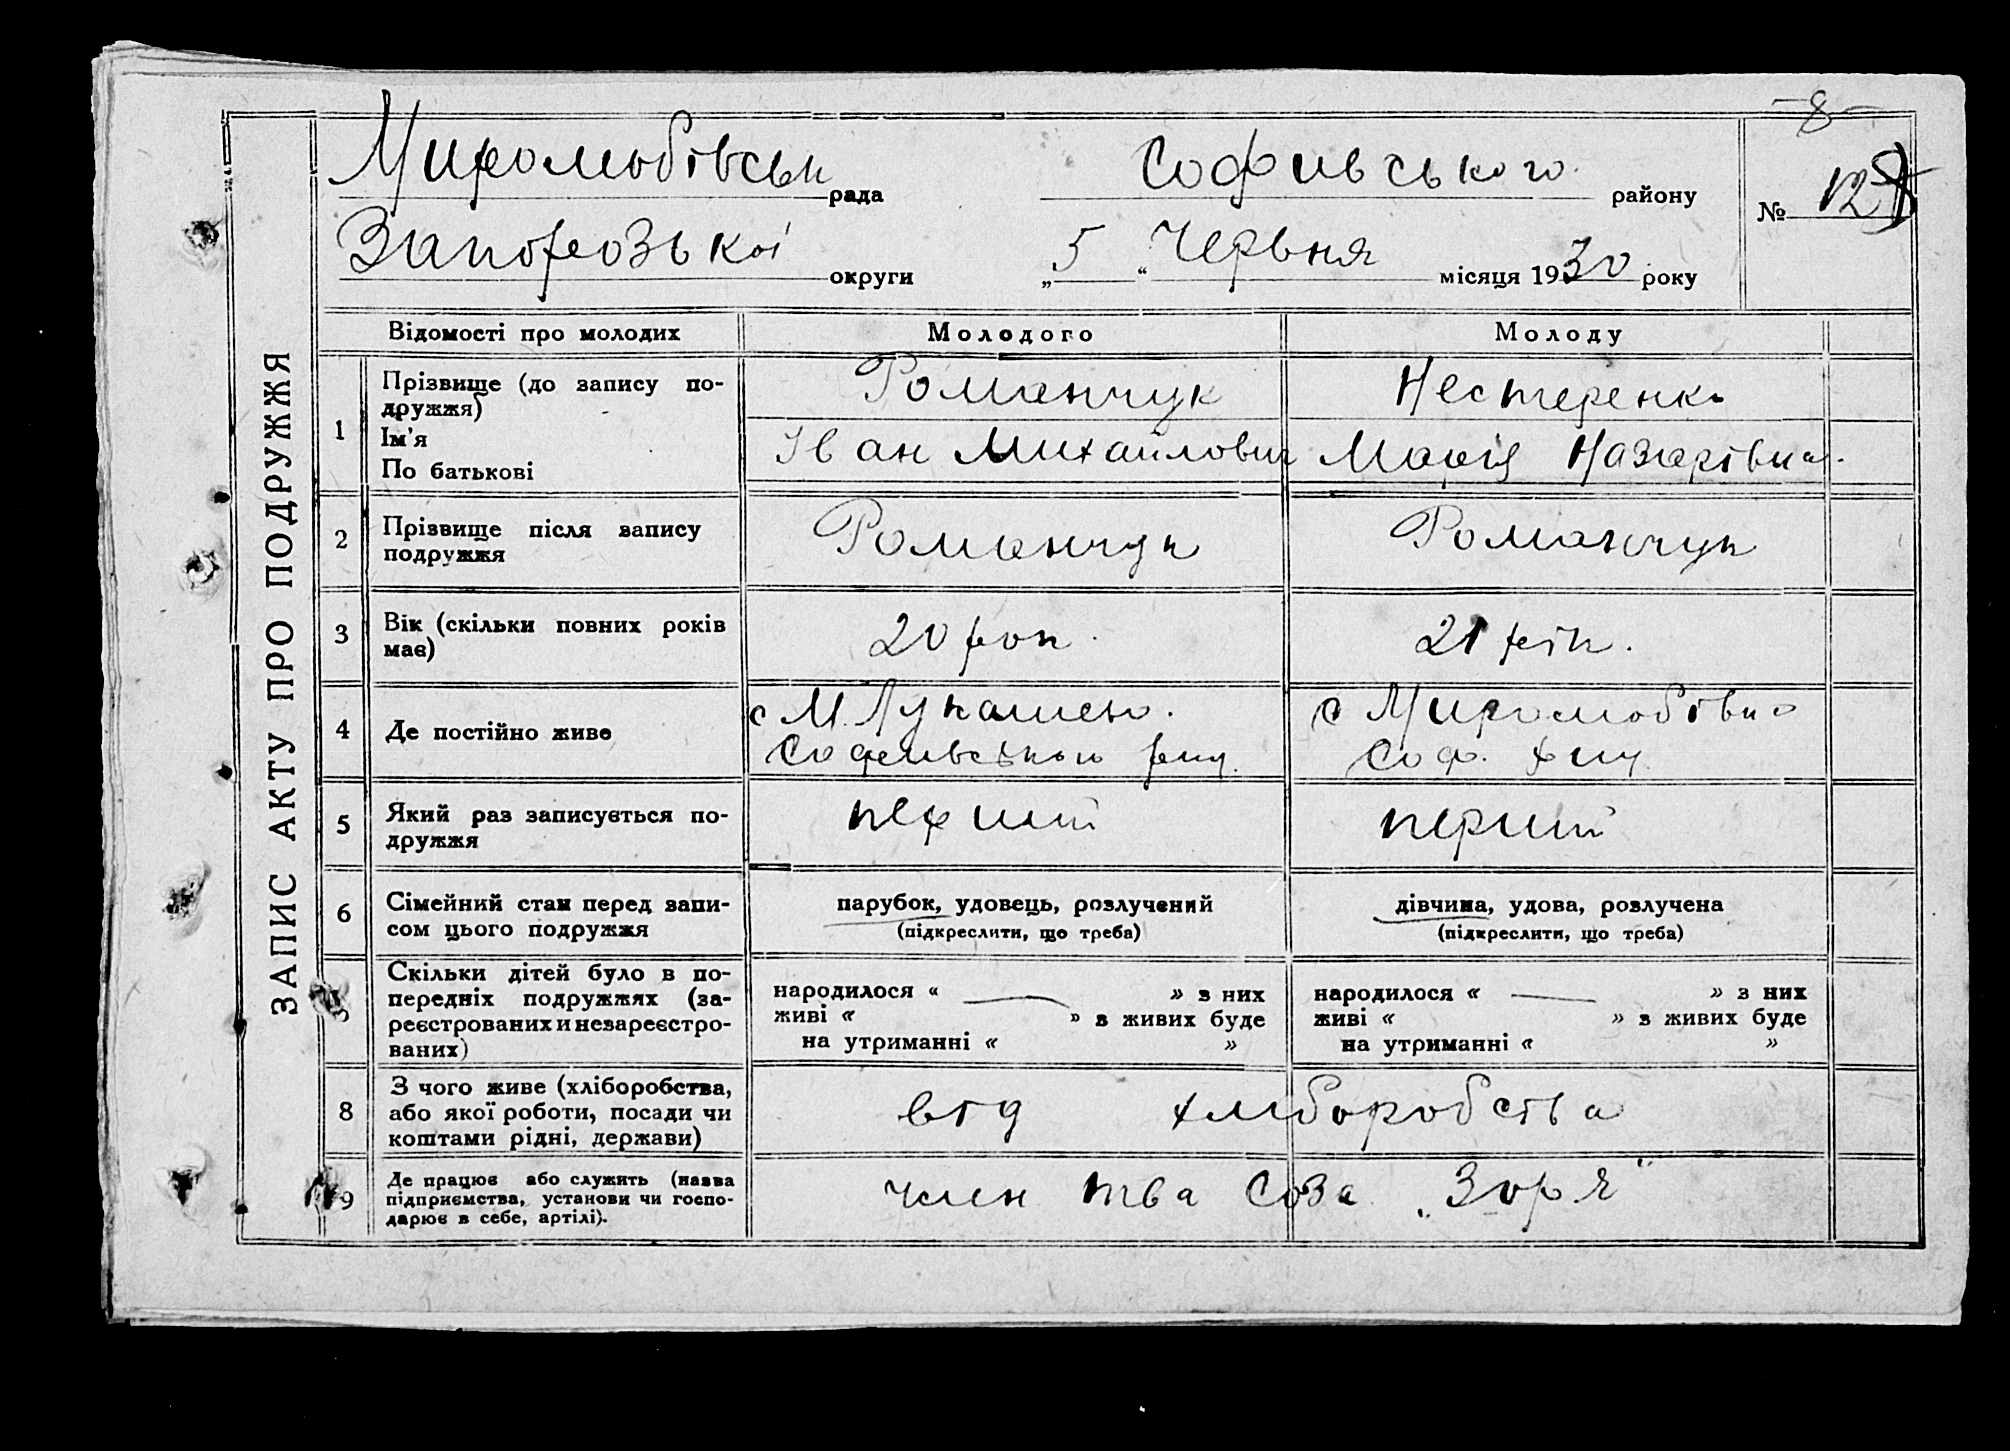 -8-
Миролюбівськ рада Софиівського району № 12
Запорозької округи „5“ Червня місяця 1930 року
ЗАПИС АКТУ ПРО ПОДРУЖЖЯ
Відомості про молодих Молодого Молоду
1 Прізвище (до запису по-
дружжя) Романчук Нестеренко
Ім’я
По батькові Іван Михайлович Марія Назарівна
2 Прізвище після запису
подружжя Романчук Романчук
3 Вік (скільки повних років
має) 20 рок. 21 рік.
4 Де постійно живе с М. Лукашево. с Миролюбівка
Софиівського рну. Соф. рну.
5 Який раз записується по-
дружжя перший перший
6 Сімейний стан перед запи-
сом цього подружжя парубок, удовець, розлучений дівчина, удова, розлучена
(підкреслити, що треба) (підкреслити, що треба)
Скільки дітей було в по-
передніх подружжях (за-
реєстрованих и незареєстро-
ваних)
народилося “ — ” з них народилося “ — ” з них
живі “ ” з живих буде живі “ ” з живих буде
на утриманні “ ” на утриманні “ ”
8 З чого живе (хліборобства,
або якої роботи, посади чи
коштами рідні, держави) від хліборобства
9 Де працює або служить (назва
підприємства, установи чи госпо-
дарює в себе, артілі). член тва Соза „Зоря“